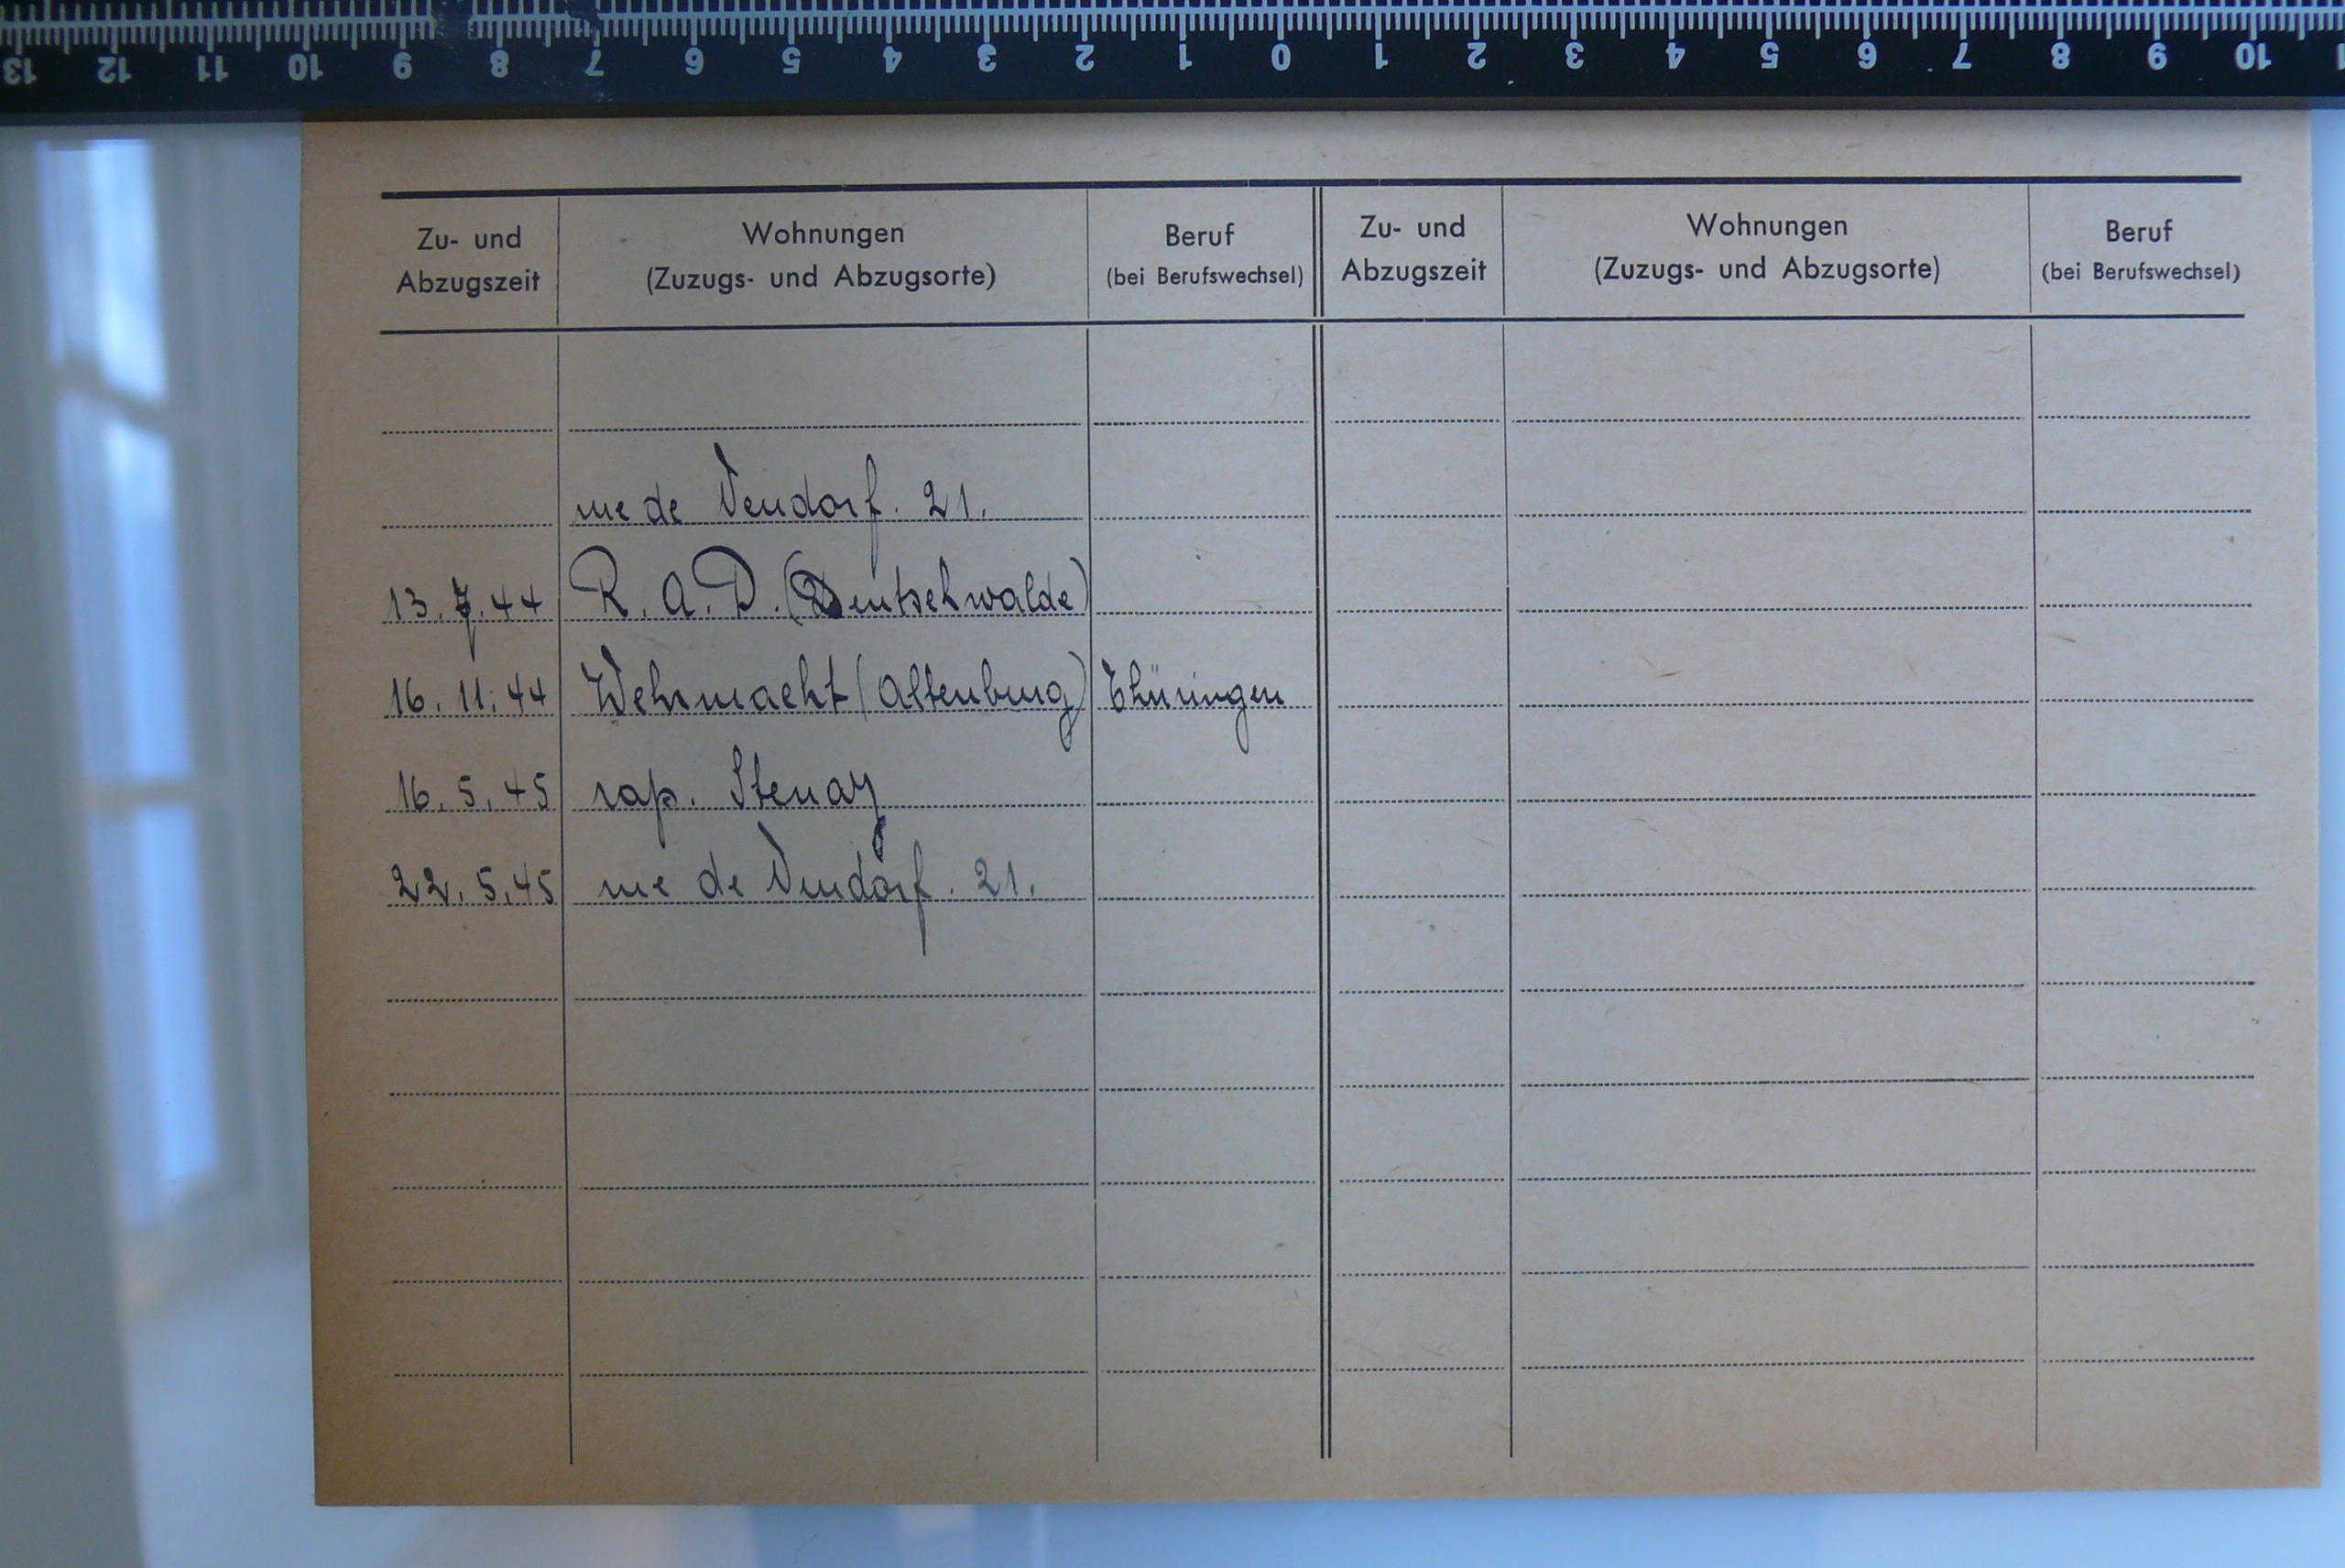 13 12 11 10 9 8 7 6 5 4 3 2 1 0 1 2 3 4 5 6 7 8 9 10
Zu- und Abzugszeit Wohnungen (Zuzugs- und Abzugsorte) Beruf (bei Berufswechsel) Zu- und Abzugszeit Wohnungen (Zuzugs- und Abzugsorte) Beruf (bei Berufswechsel)
rue de Vendorf. 21.
13. 7. 44 R. A. D. (Deutschwalde)
16. 11. 44 Wehrmacht (Altenburg) Thüringen
16. 5. 45 rap. Stenay
22. 5. 45 rue de Vendorf. 21.